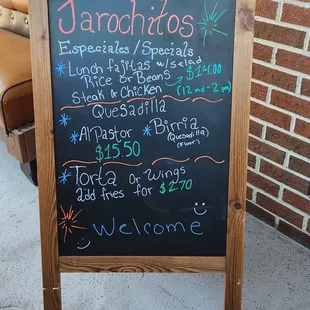 Jarochitos
Especiales/Specials
* Lunch fajitas w/ salad
Rice or Beans → $14.00
Steak & Chicken (12 md-2pm)
Quesadilla
* Al Pastor * Birria
(Quesadilla)
$15.50 (Flour)
* Torta or Wings
add fries for $2.70
Welcome